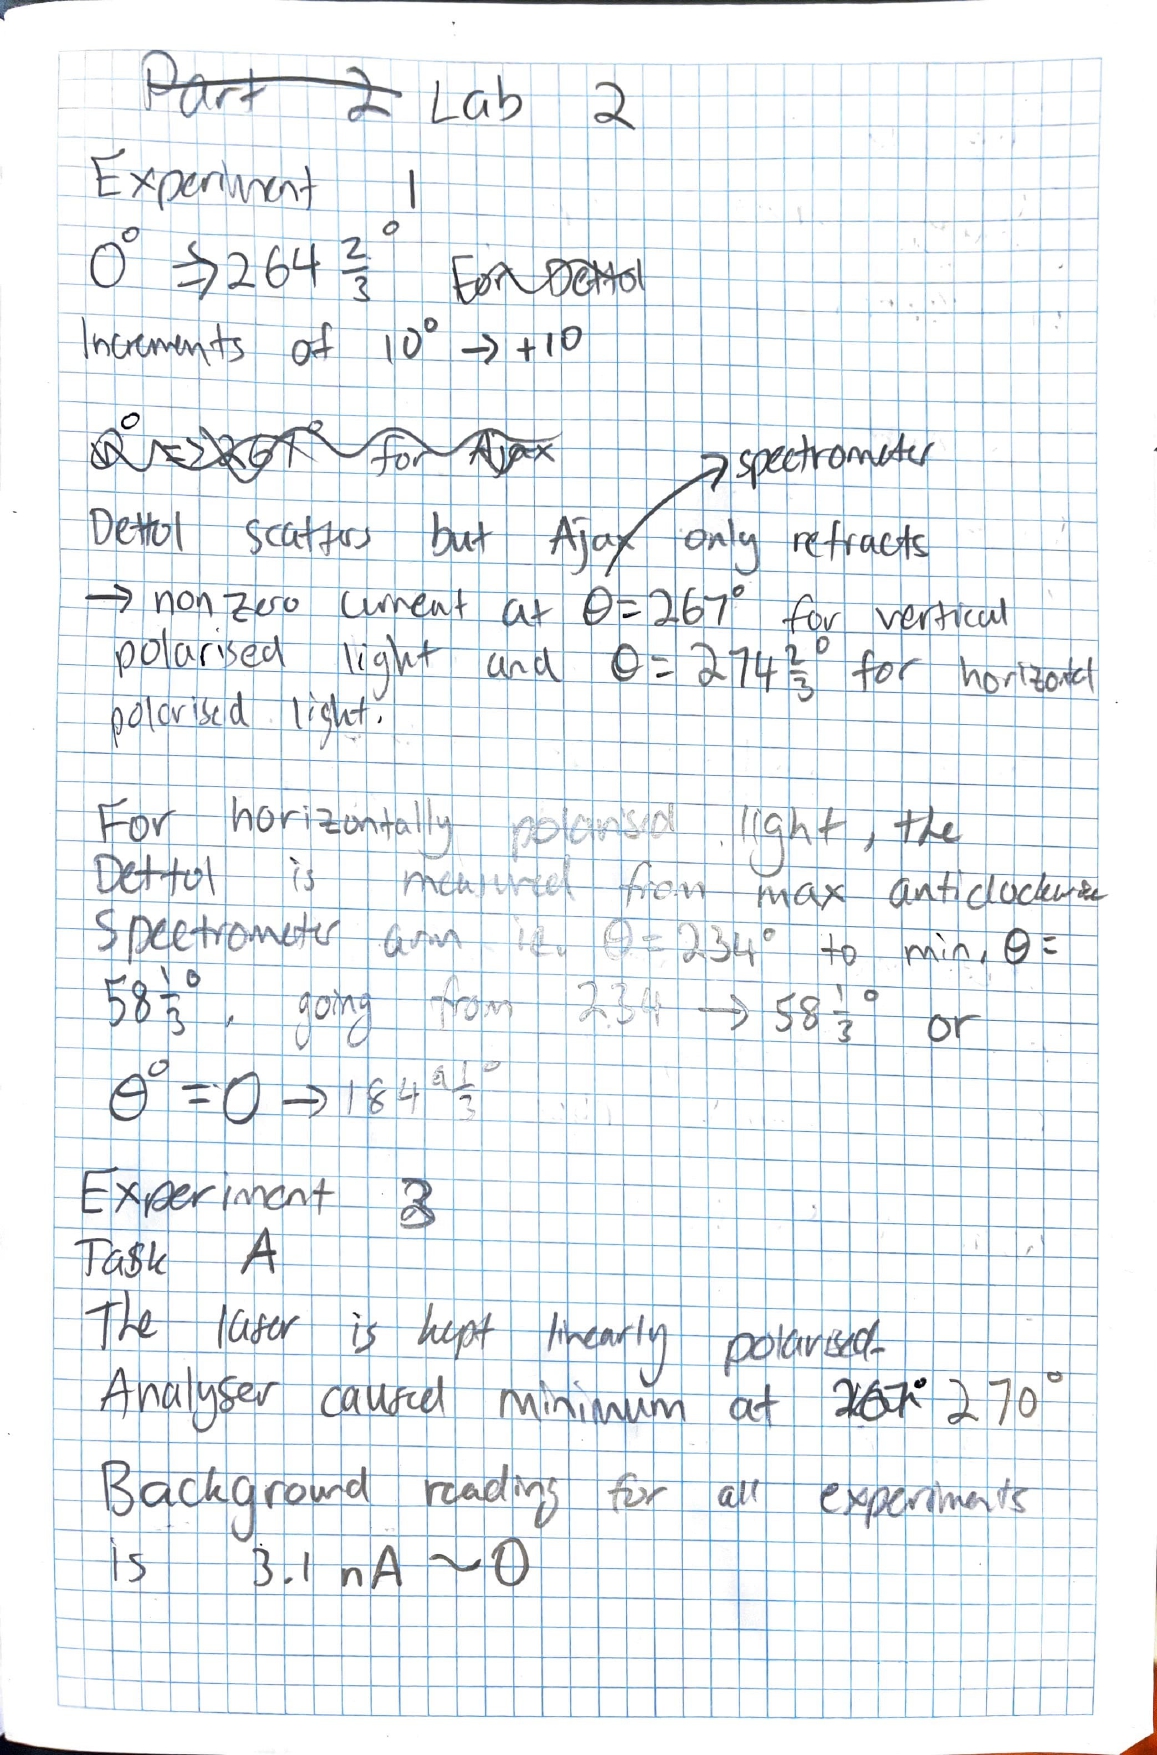 Part 2 Lab 2
Experiment 1
0° ⇒ 264 2/3° For Dettol
Increments of 10° → +10
0° => 267° for Ajax
→ spectrometer
Dettol scatters but Ajax only refracts
→ non zero current at θ=267° for vertical
polarised light and θ=274 2/3° for horizontal
polarised light.
For horizontally polarised light, the
Dettol is measured from max anticlockwise
Spectrometer arm ie. θ=234° to min. θ=
58 1/3°, going from 234 → 58 1/3° or
θ° = 0 → 184 1/3°
Experiment 3
Task A
The laser is kept linearly polarised.
Analyser caused minimum at 267° 270°
Background reading for all experiments
is 3.1 nA ~ 0